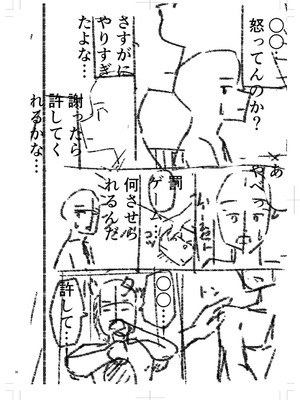 ○○…
怒ってんのか？
さすがに
やりすぎ
たよな…
謝ったら
許してく
れるかな…
あ
やべっ
罰
ゲーム
何させら
れるんだ
トン
○○…
許して…